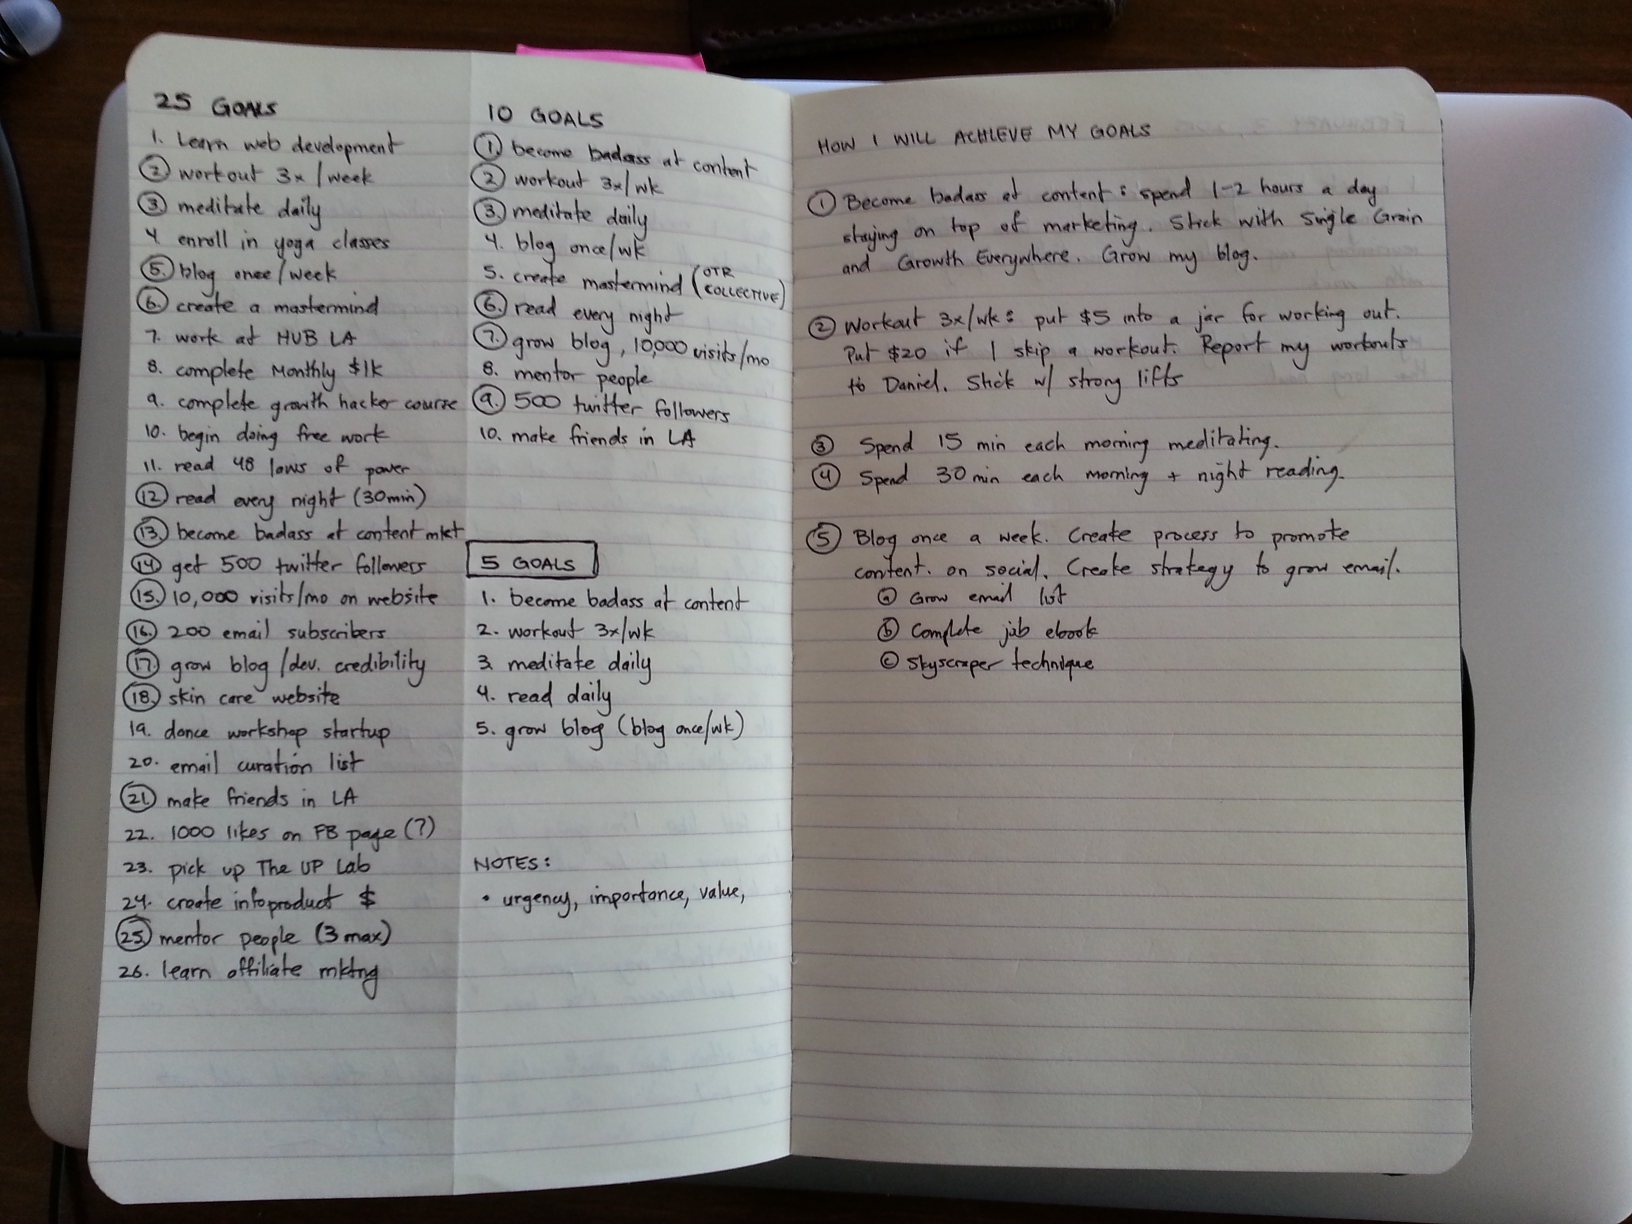 25 GOALS
1. Learn web development
2 workout 3x/week
3. meditate daily
4. enroll in yoga classes
5. blog once/week
6. create a mastermind
7. work at HUB LA
8. complete Monthly $1k
9. complete growth hacker course
10. begin doing free work
11. read 48 laws of power
12 read every night (30min)
13. become badass at content mkt
14 get 500 twitter followers
15. 10,000 visits/mo on website
16. 200 email subscribers
17. grow blog/dev. credibility
18. skin care website
19. dance workshop startup
20. email curation list
21. make friends in LA
22. 1000 likes on FB page (?)
23. pick up The UP Lab
24. create infoproduct $
25. mentor people (3 max)
26. learn affiliate mktng
10 GOALS
1. become badass at content
2 workout 3x/wk
3. meditate daily
4. blog once/wk
5. create mastermind (OTR
COLLECTIVE)
6. read every night
7. grow blog, 10,000 visits/mo
8. mentor people
9. 500 twitter followers
10. make friends in LA
5 GOALS
1. become badass at content
2. workout 3x/wk
3. meditate daily
4. read daily
5. grow blog (blog once/wk)
NOTES:
• urgency, importance, value,
HOW I WILL ACHIEVE MY GOALS
1 Become badass at content: spend 1-2 hours a day
staying on top of marketing. Stick with Single Grain
and Growth Everywhere. Grow my blog.
2 Workout 3x/wk: put $5 into a jar for working out.
Put $20 if I skip a workout. Report my workouts
to Daniel. Stick w/ strong lifts
3 Spend 15 min each morning meditating.
4 Spend 30 min each morning + night reading.
5 Blog once a week. Create process to promote
content. on social. Create strategy to grow email.
a Grow email list
b Complete job ebook
c skyscraper technique